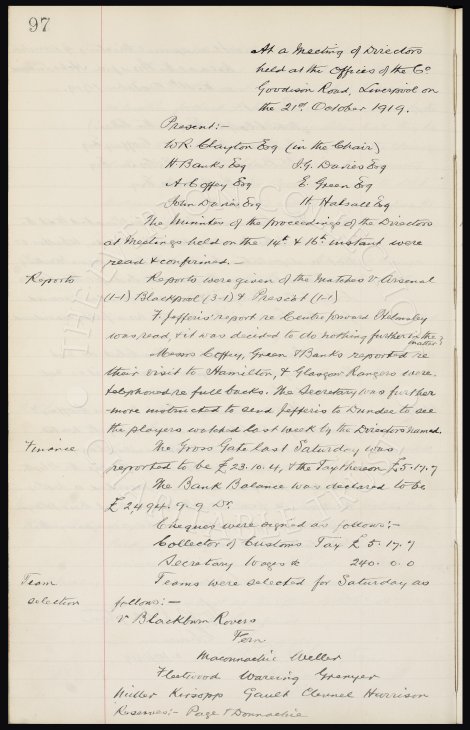 97
At a Meeting of Directors
held at the Offices of the Co
Goodison Road, Liverpool on
the 21st October 1919.
Present:-
W.R. Clayton Esq (in the Chair)
H Banks Esq J.G. Davies Esq
A. Coffey Esq E. Green Esq
John Davies Esq H. Halsall Esq
The Minutes of the proceedings of the Directors
at Meetings held on the 14th & 16th instant were
read & confirmed.-
Reports Reports were given of the Matches v. Arsenal
(1-1) Blackpool (3-1) & Prescot (1-1)
F Jefferis' report re Centre forward
was read, & it was decided to do nothing further in the
matter.
Messrs Coffey, Green & Banks reported re
their visit to Hamilton, & Glasgow Rangers were
telephoned re full backs. The Secretary was further
more instructed to send Jefferis to Dundee to see
the players watched last week by the Directors named.
Finance The Gross Gate last Saturday was
reported to be £23.10.4, & the Tax thereon £5.17.7
The Bank Balance was declared to be
£2494.9.9 Dr.
Cheques were signed as follows:-
Collector of Customs Tax £5.17.7
Secretary Wages &c 240.0.0
Team Teams were selected for Saturday as
selection follows:-
v Blackburn Rovers
Fern
Maconnachie Weller
Fleetwood Wareing Grenyer
Miller Kirsopp Gault Clennel Harrison
Reserves:- Page & Donnachie